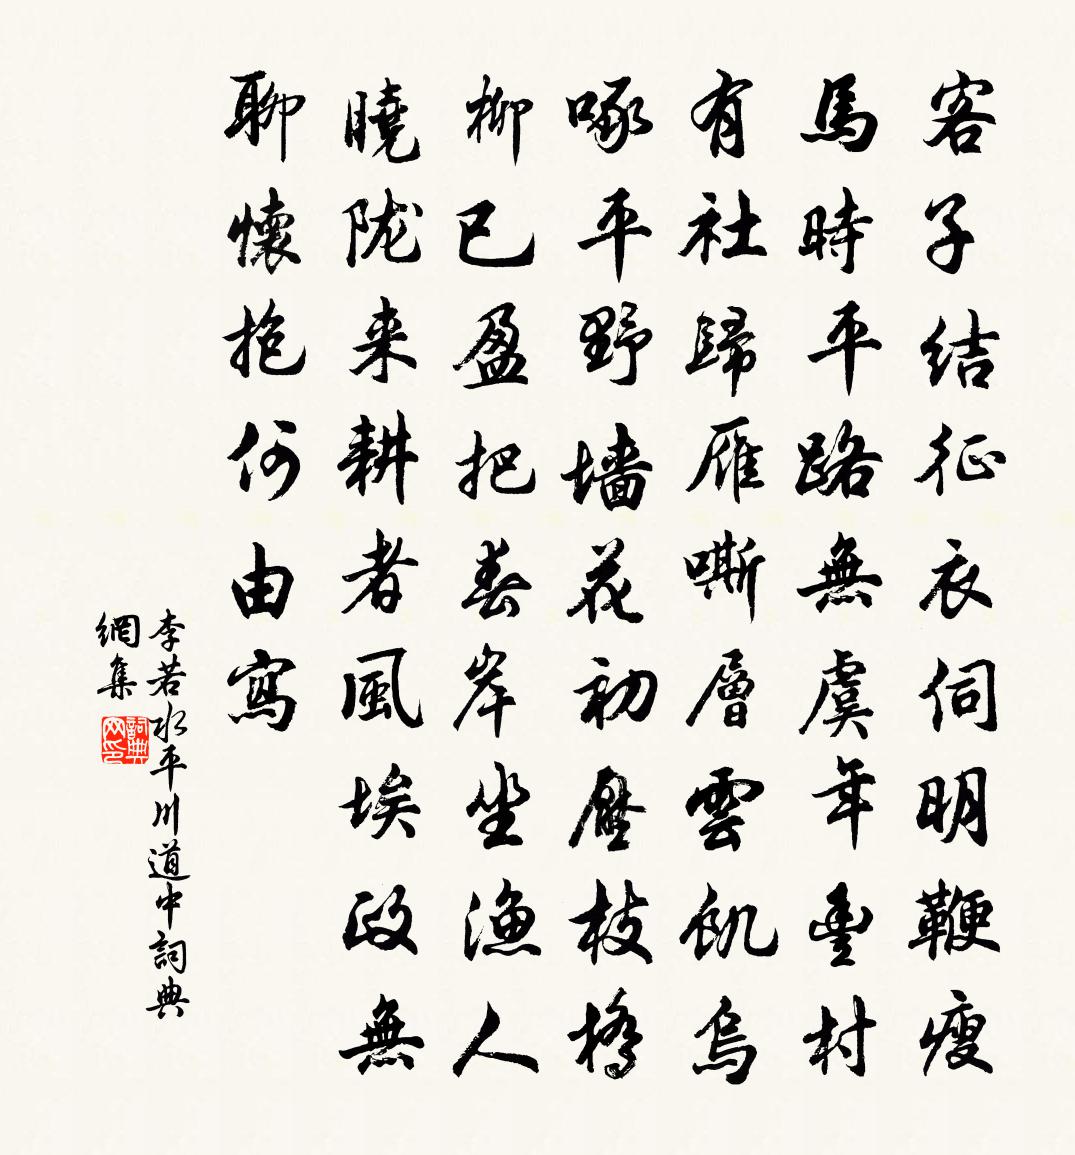 客子结征衣伺明鞭瘦
馬時平路無虞年豊村
有社歸雁嘶層雲飢烏
啄平野墙花初壓枝橋
柳已盈把春岸坐漁人
曉陇来耕者風埃政無
聊懷抱何由寫
李若水平川道中詞典
網集
詞典網印